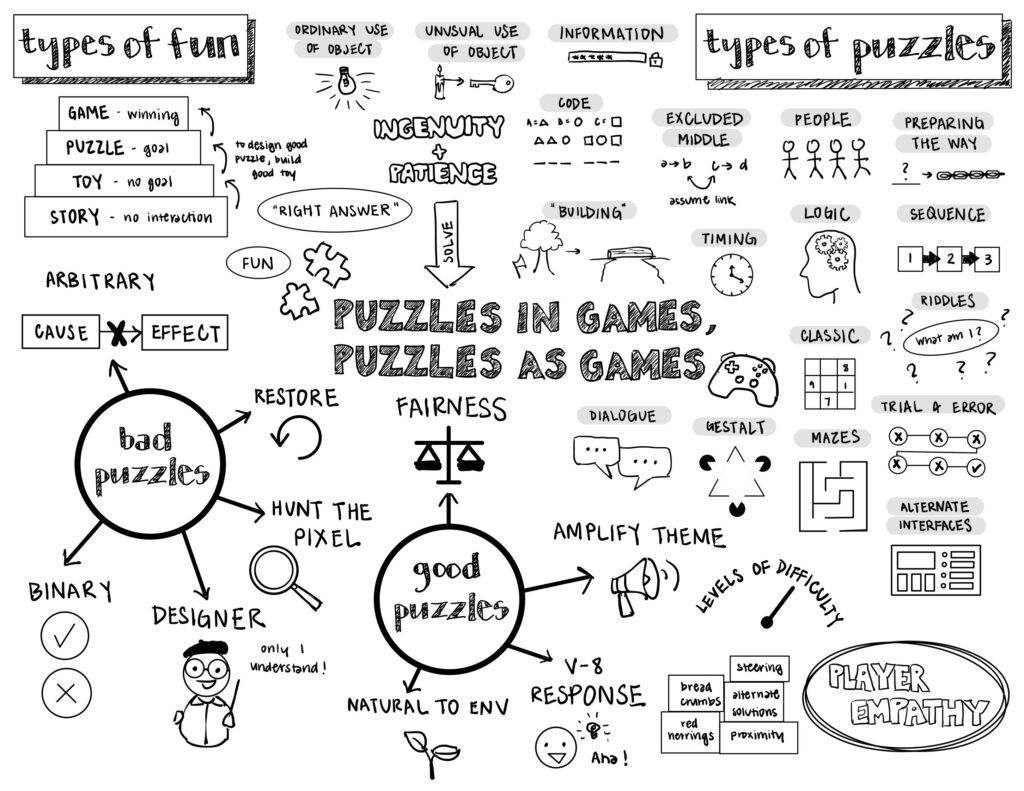 types of fun
GAME - winning
PUZZLE - goal
TOY - no goal
STORY - no interaction
to design good
puzzle, build
good toy
"RIGHT ANSWER"
FUN
ORDINARY USE
OF OBJECT
UNUSUAL USE
OF OBJECT
INFORMATION
*****
INGENUITY
+
PATIENCE
SOLVE
PUZZLES IN GAMES,
PUZZLES AS GAMES
types of puzzles
CODE
A=△ B=○ C=□
△△○ □○□
EXCLUDED
MIDDLE
a→b c→d
assume link
PEOPLE
PREPARING
THE WAY
?
"BUILDING"
TIMING
LOGIC
SEQUENCE
1 2 3
RIDDLES
? ?
what am I?
? ? ?
CLASSIC
8
9 1
7
TRIAL & ERROR
X X X
X X ✓
DIALOGUE
... ...
GESTALT
MAZES
ALTERNATE
INTERFACES
ARBITRARY
CAUSE X EFFECT
bad
puzzles
RESTORE
HUNT THE
PIXEL
BINARY
DESIGNER
only I
understand!
FAIRNESS
good
puzzles
AMPLIFY THEME
V-8
RESPONSE
Aha!
NATURAL TO ENV
LEVELS OF DIFFICULTY
steering
bread
crumbs
alternate
solutions
red
herrings
proximity
PLAYER
EMPATHY